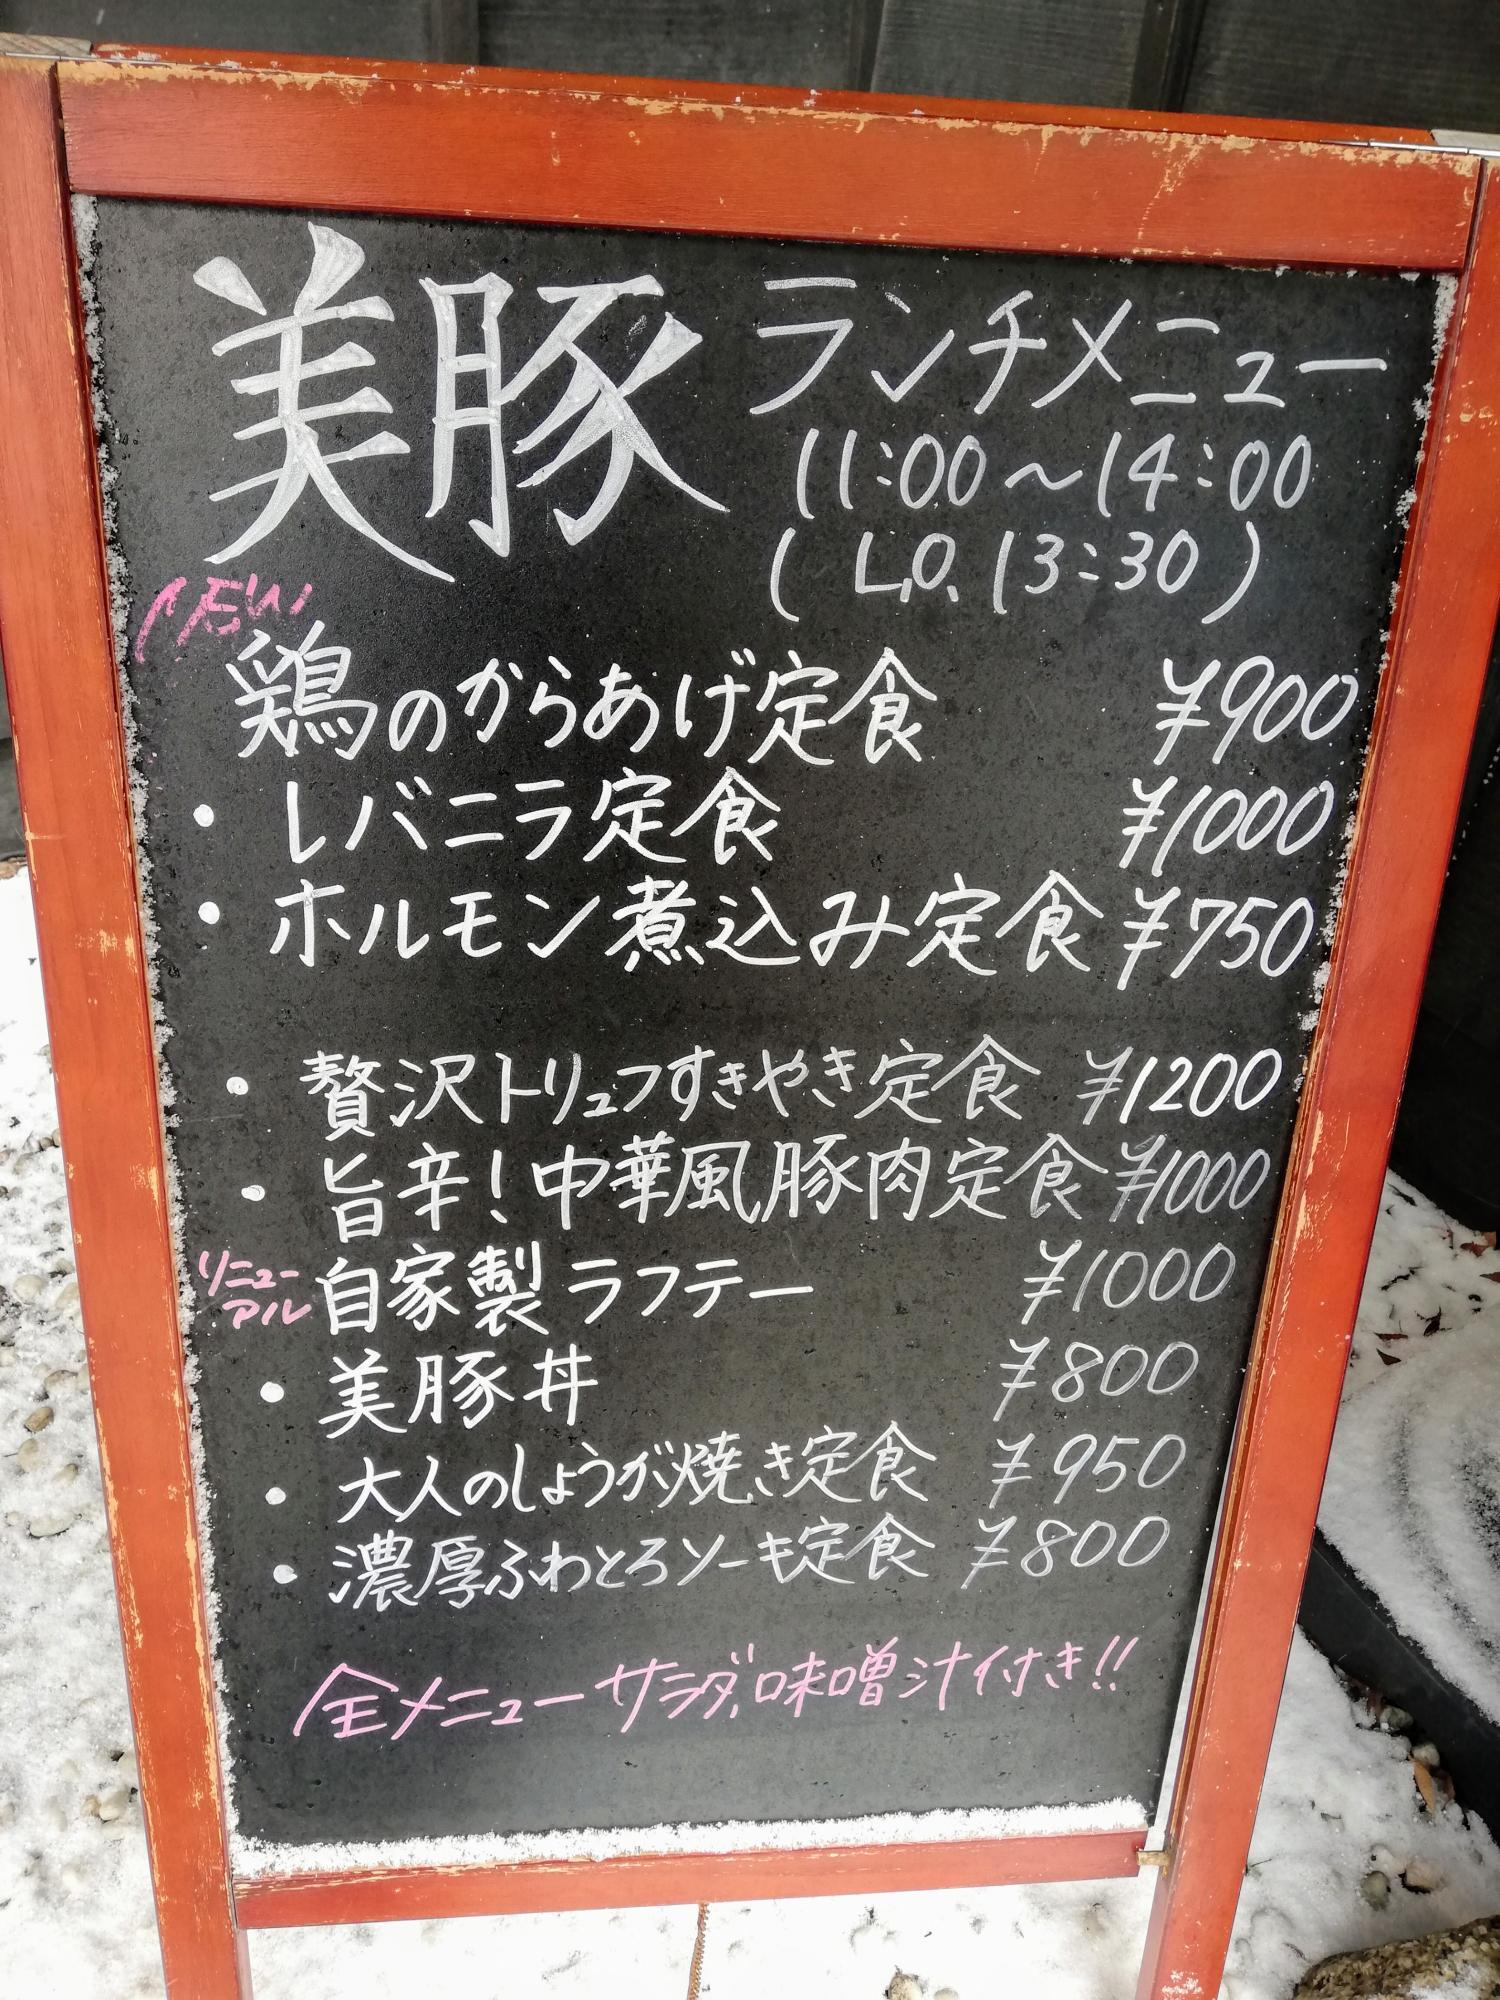 美豚 ランチメニュー
11:00～14:00
(L.O. 13:30)
NEW
鶏のからあげ定食 ¥900
・レバニラ定食 ¥1000
・ホルモン煮込み定食 ¥750
・贅沢トリュフすきやき定食 ¥1200
・旨辛!中華風豚肉定食 ¥1000
リニューアル 自家製ラフテー ¥1000
・美豚丼 ¥800
・大人のしょうが焼き定食 ¥950
・濃厚ふわとろソーキ定食 ¥800
全メニューサラダ、味噌汁付き!!